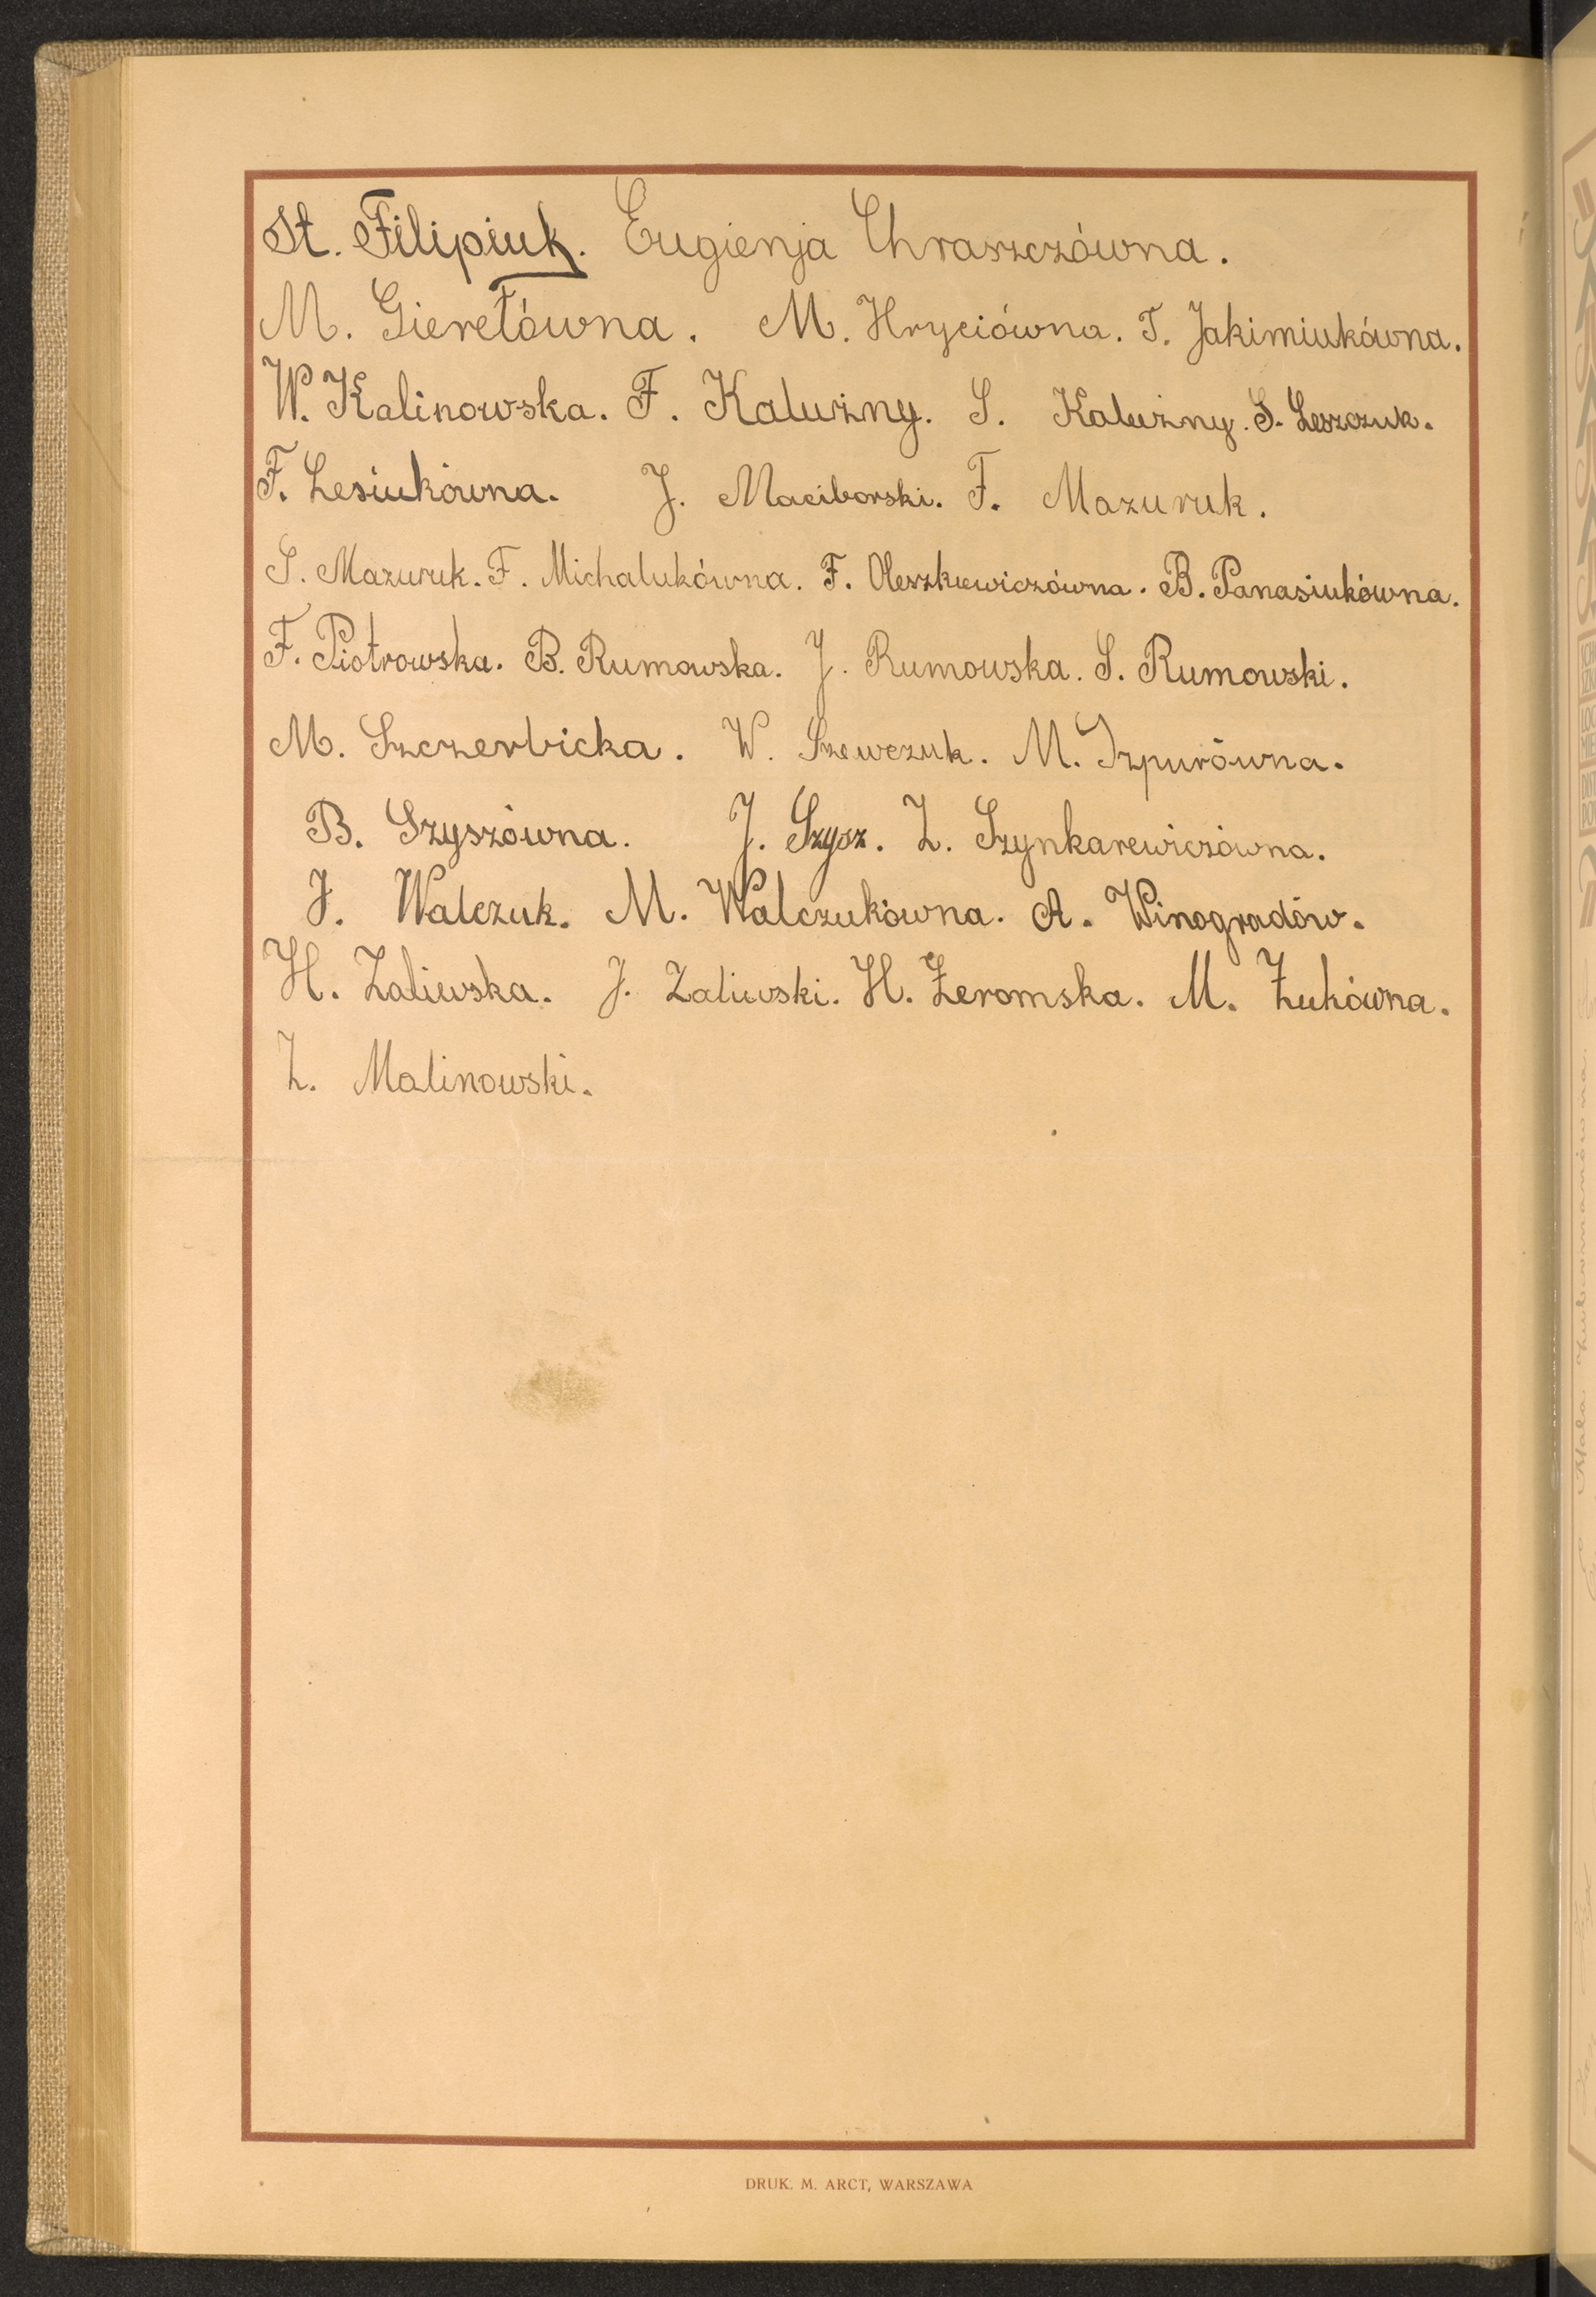 St. Filipiuk. Eugienja Chraszczówna.
M. Gierełówna. M. Hryciówna. T. Jakimiukówna.
W. Kalinowska. F. Kalużny. S. Kalużny. S. Leszczuk.
F. Lesiukówna. J. Maciborski. F. Mazuruk.
S. Mazuruk. F. Michalukówna. F. Oleszkiewiczówna. B. Panasiukówna.
F. Piotrowska. B. Rumowska. J. Rumowska. S. Rumowski.
M. Szczerbicka. W. Szewczuk. M. Szpurówna.
B. Szyszówna. J. Szysz. Z. Szynkarewiczówna.
J. Walczuk. M. Walczukówna. A. Winogradów.
H. Zaliwska. J. Zaliwski. H. Żeromska. M. Żukówna.
Z. Malinowski.
DRUK. M. ARCT, WARSZAWA